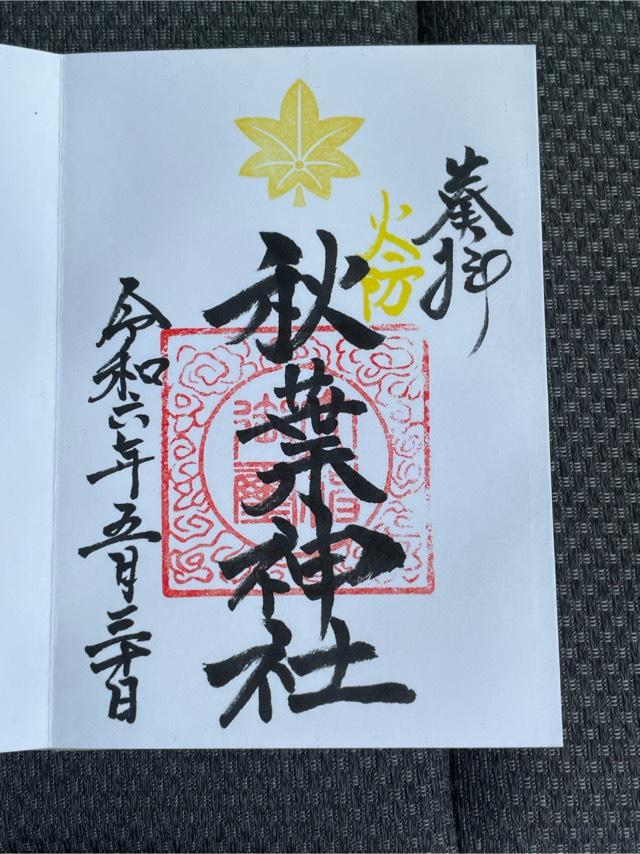 奉拝
火防
秋葉神社
令和六年五月三十日